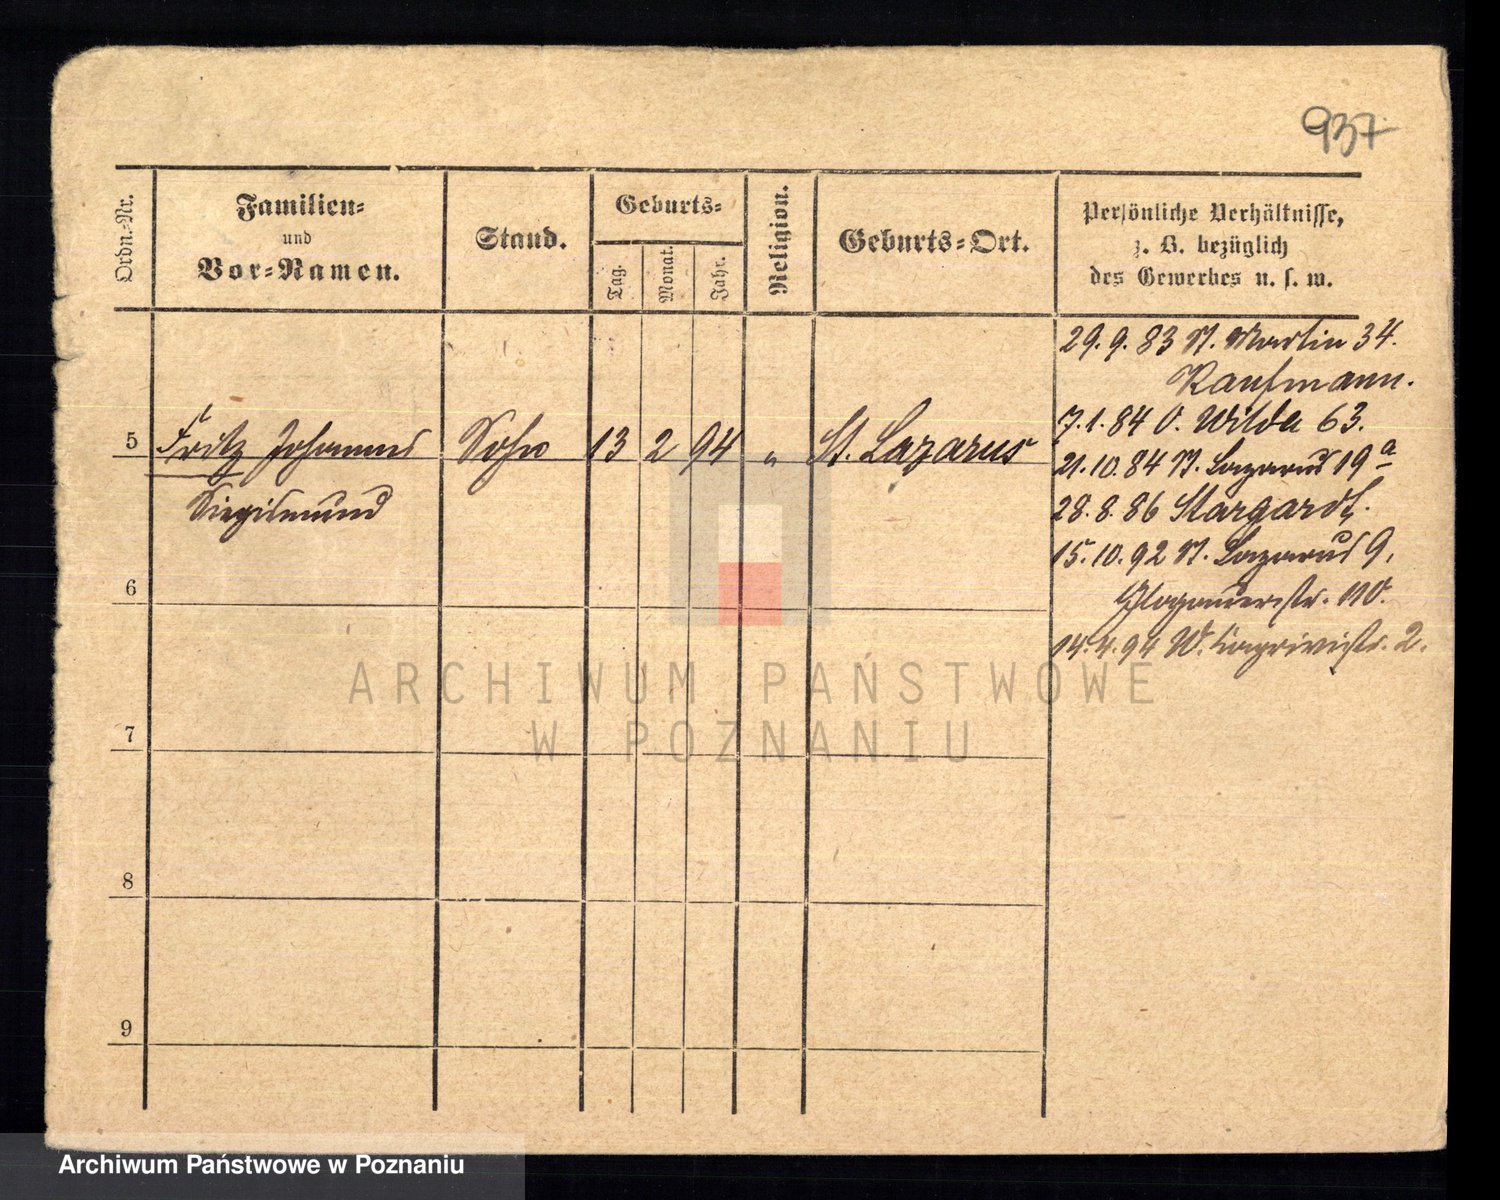 937
Ordn.-Nr.
Familien-
und
Vor-Namen.
Stand.
Geburts-
Tag.
Monat.
Jahr.
Religion.
Geburts-Ort.
Persönliche Verhältnisse,
z. B. bezüglich
des Gewerbes u. s. w.
29. 9. 83 St. Martin 34.
Kaufmann.
7. 1. 84 O. Wilda 63.
5 Fritz Johannes Sohn 13 2 94 " St. Lazarus
Siegismund
21. 10. 84 St. Lazarus 19a
28. 8. 86 Stargardt.
15. 10. 92 St. Lazarus 9,
Glogauerstr. 110.
14. 4. 94 W. Caprivistr. 2.
6
7
8
9
ARCHIWUM PAŃSTWOWE
W POZNANIU
Archiwum Państwowe w Poznaniu